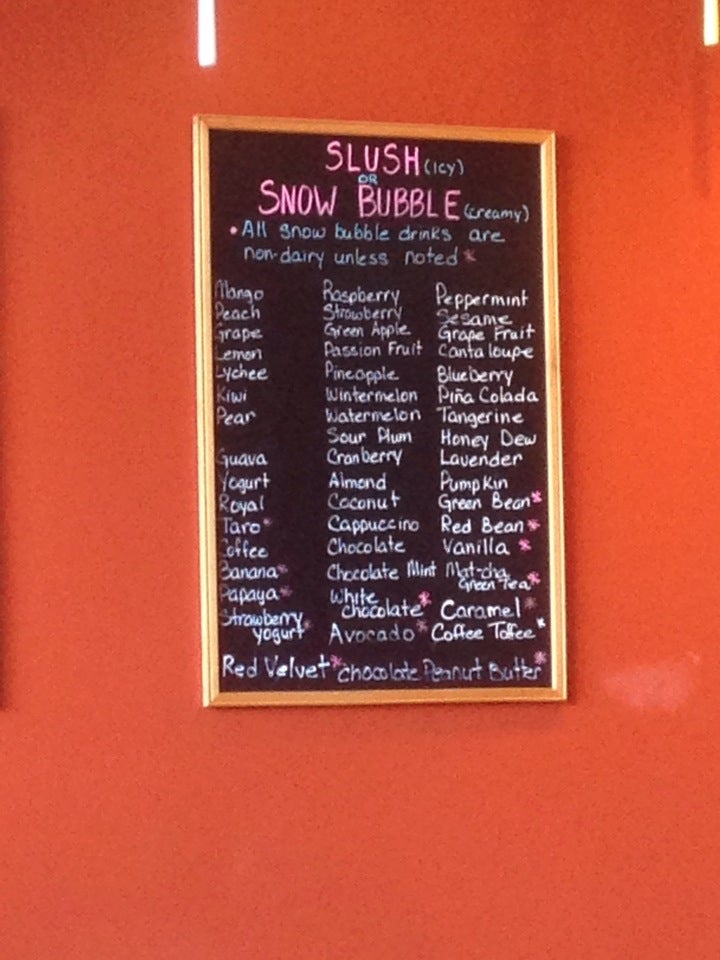 SLUSH (icy)
OR
SNOW BUBBLE (creamy)
• All snow bubble drinks are
non-dairy unless noted *
Mango Raspberry Peppermint
Peach Strawberry Sesame
Grape Green Apple Grape Fruit
Lemon Passion Fruit Cantaloupe
Lychee Pineapple Blueberry
Kiwi Wintermelon Piña Colada
Pear Watermelon Tangerine
Sour Plum Honey Dew
Guava Cranberry Lavender
Yogurt Almond Pumpkin
Royal Coconut Green Bean*
Taro* Cappuccino Red Bean*
Coffee Chocolate Vanilla *
Banana* Chocolate Mint Mat-cha
Green Tea*
Papaya* White
chocolate* Caramel*
Strawberry
yogurt* Avocado* Coffee Toffee*
Red Velvet* Chocolate Peanut Butter*